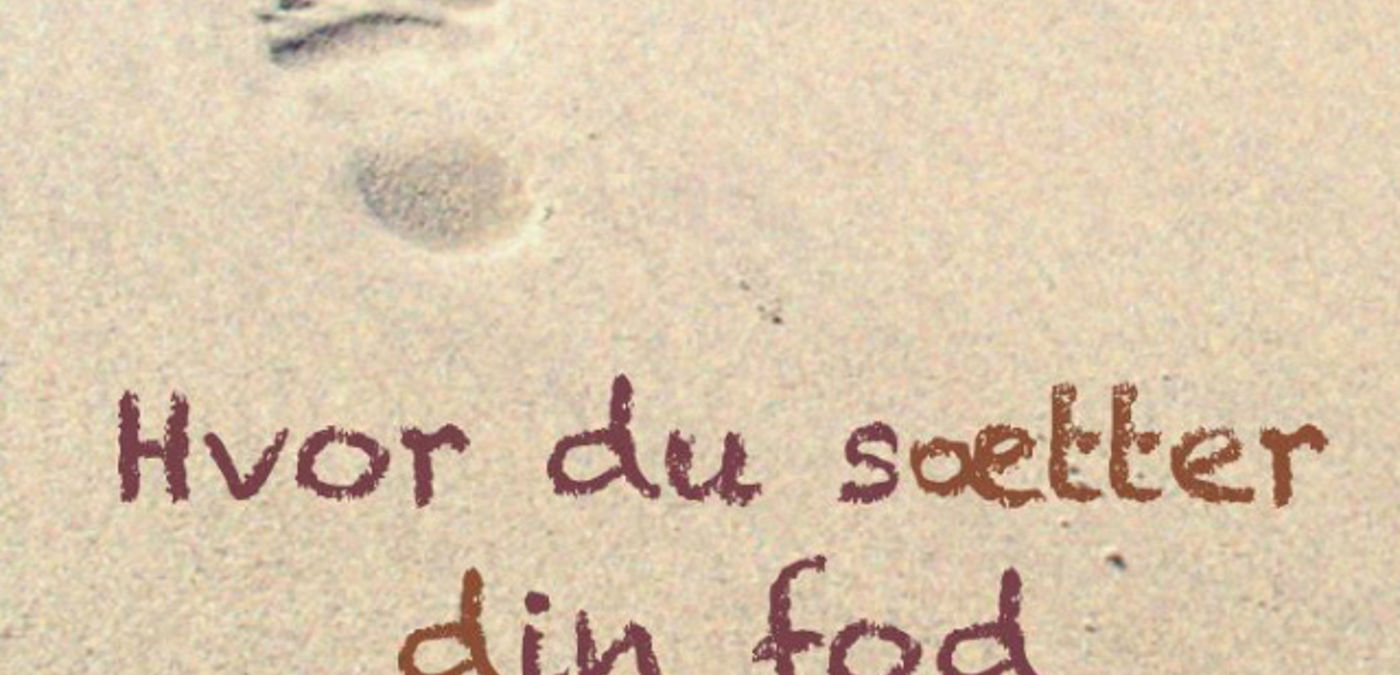 Hvor du sætter
din fod